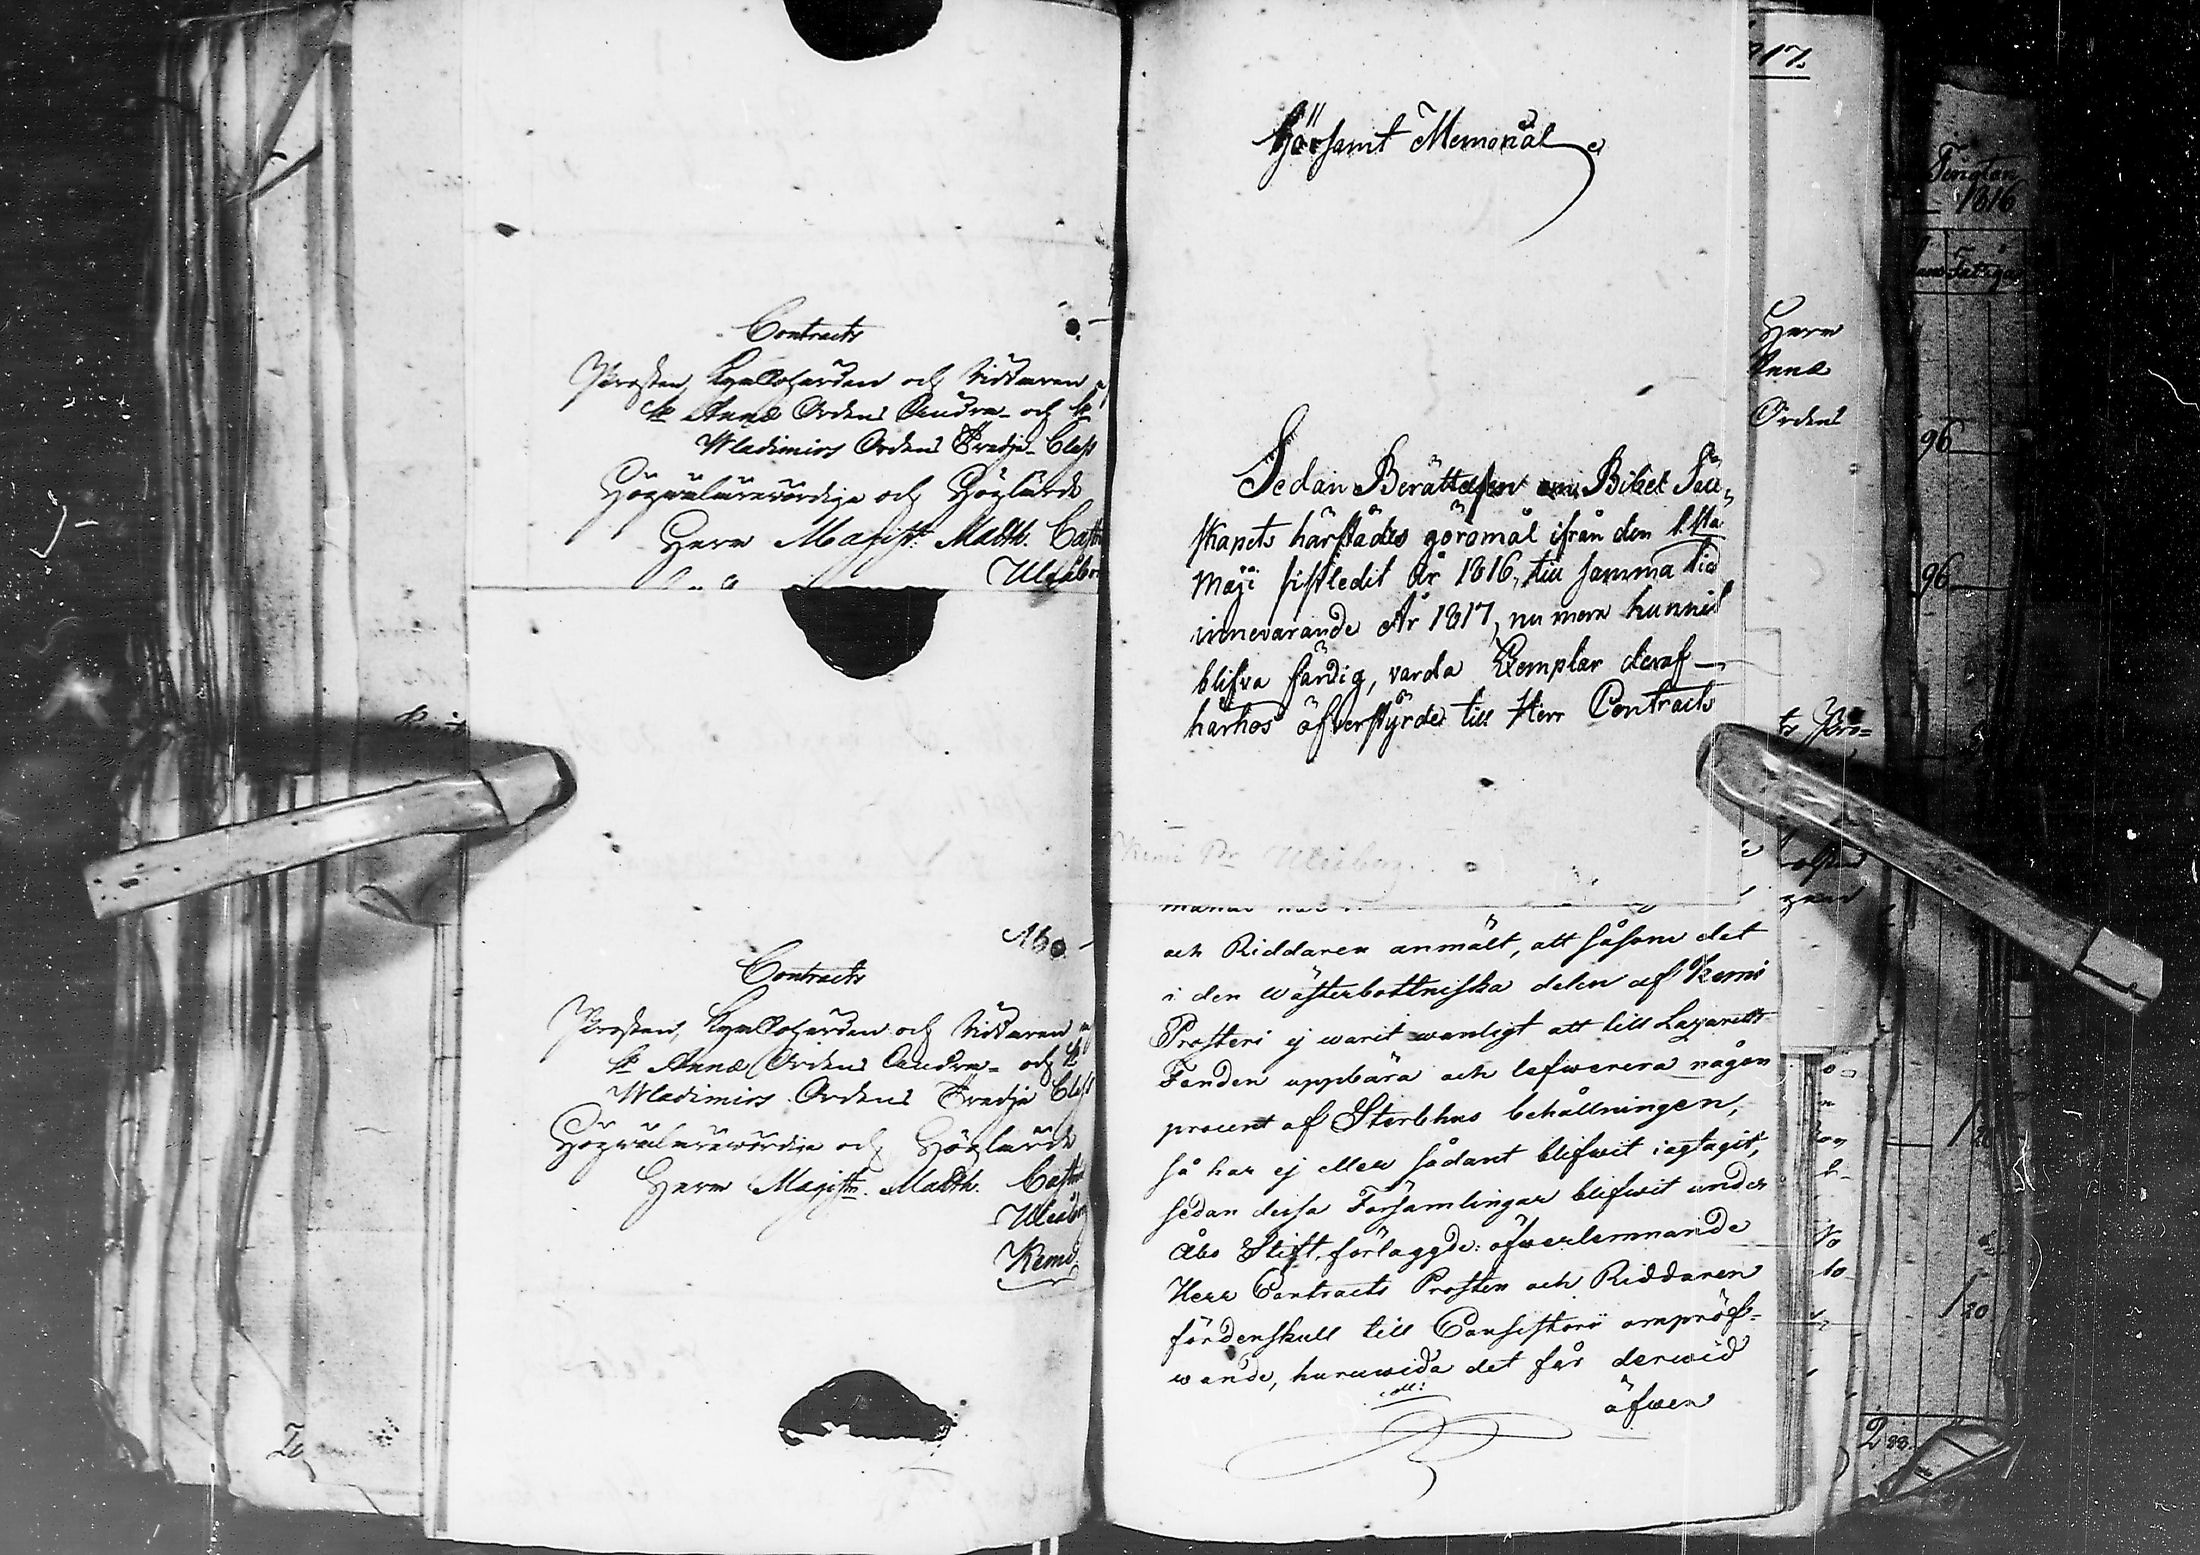 Contracts
Prosten, Kyrkoherden och Riddaren af
St Annæ Ordens Andra- och St
Wladimirs Ordens Tredje Class
Högvälärevördige och Höglärde
Herr Magist. Matth. Castr
Uleåbor
Åbo
Contracts
Prosten, Kyrkoherden och Riddaren af
St Annæ Ordens Andra- och St
Wladimirs Ordens Tredje Class
Högvälärevördige och Höglärde
Herr Magistr. Matth. Castr
Uleåbor
Kemi
Hörsamt Memorial
Sedan Berättelsen om Bibel Säll-
skapets härstädes göromål ifrån den 1sta
Maji sistledit år 1816, till samma tid
innevarande År 1817, nu mera hunnit
blifva färdig, varda Exemplar deraf
härhos öfverstyrde till Herr Contracts
Kemi Pr Uleåborg
och Riddaren anmält, att såsom det
i den Wästerbottniska delen af Kemi
Prosteri ej warit wanligt att till Lazaretts
Fonden uppbära och lefwerera någon
procent af Sterbhus behållningen,
så har ej eller sådant blifwit iagtagit,
sedan dessa Församlingar blifwit under
Åbo Stift förlaggde: öfwerlemnande
Herr Contracts Prosten och Riddaren
fördenskull till Consistorii ompröf-
wande, huruwida det får derwid
äfwen
17.
Herr
Annæ
Ordens
Pro-
1816
96
96
1 20
2 93